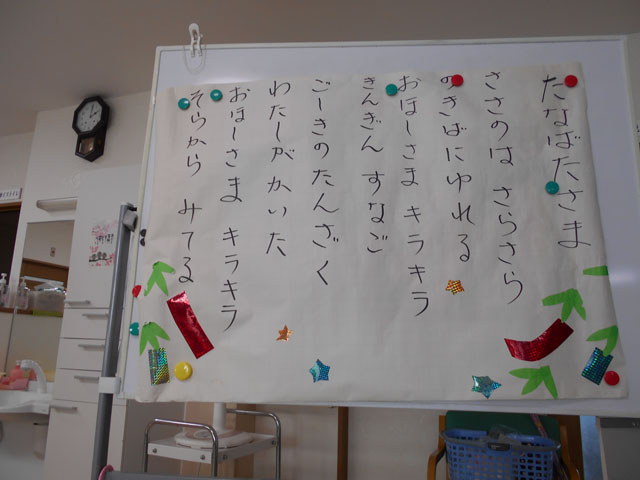 たなばたさま
ささのは さらさら
のきばにゆれる
おほしさま キラキラ
きんぎん すなご
ごーきのたんざく
わたしがかいた
おほーさま キラキラ
そらから みてる